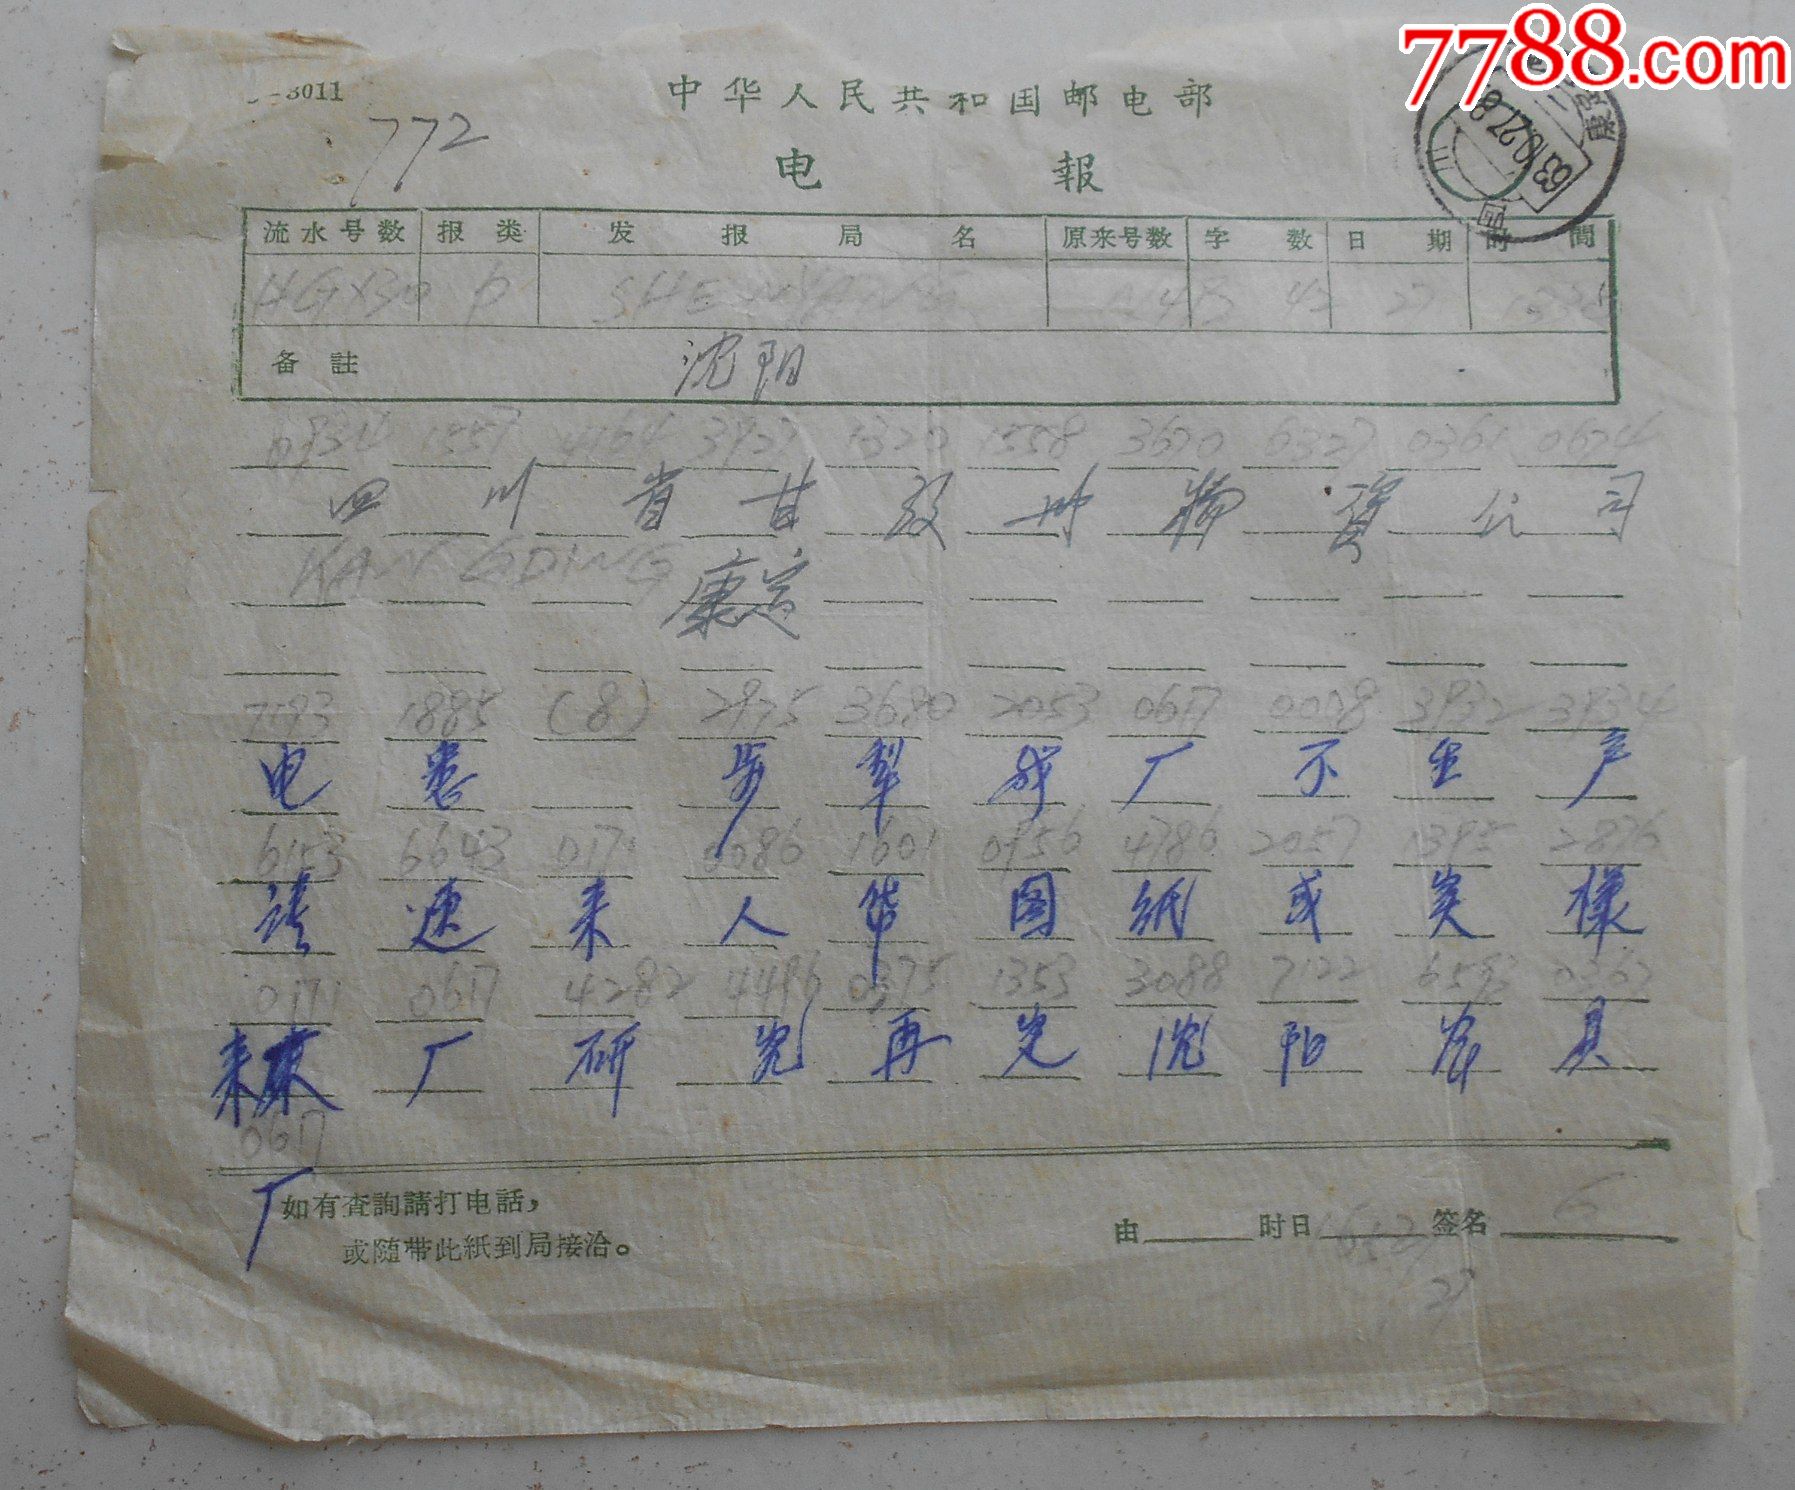 7788.com
3011
中华人民共和国邮电部
772
电 報
63.10.27.8
康定
流水号数 报类 发报局名 原来号数 字数 日期 时間
HGX30 P SHENYANG 43 27
备註 沈阳
0934 1557 4164 3927 1320 1558 3670 6327 0361 0674
四川省甘孜州物資公司
KANGDING 康定
7193 1885 (8) 2975 3680 2053 0617 0008 3932 3934
电悉 步犁我厂不生产
6153 6643 0171 0086 1601 0956 4786 2057 1395 2876
请速来人带图纸或实樣
0171 0617 4282 4496 0375 1353 3088 7122 6593 0367
来厂研究再定沈阳农具
0617
厂
如有查詢請打电話，
或随带此紙到局接洽。
由 时日 签名
27